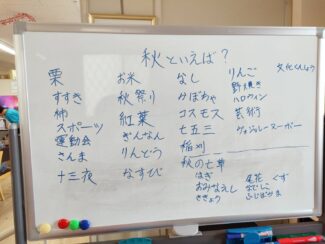 秋といえば?
栗
すすき
柿
スポーツ
運動会
さんま
十三夜
お米
秋祭り
紅葉
ぎんなん
りんどう
なすび
なし
かぼちゃ
コスモス
七五三
稲刈
秋の七草
はぎ
おみなえし
ききょう
尾花 くず
なでしこ
ふじばかま
りんご
野焼き
ハロウィン
芸術
ヴォジョレーヌーボー
文化くんしょう